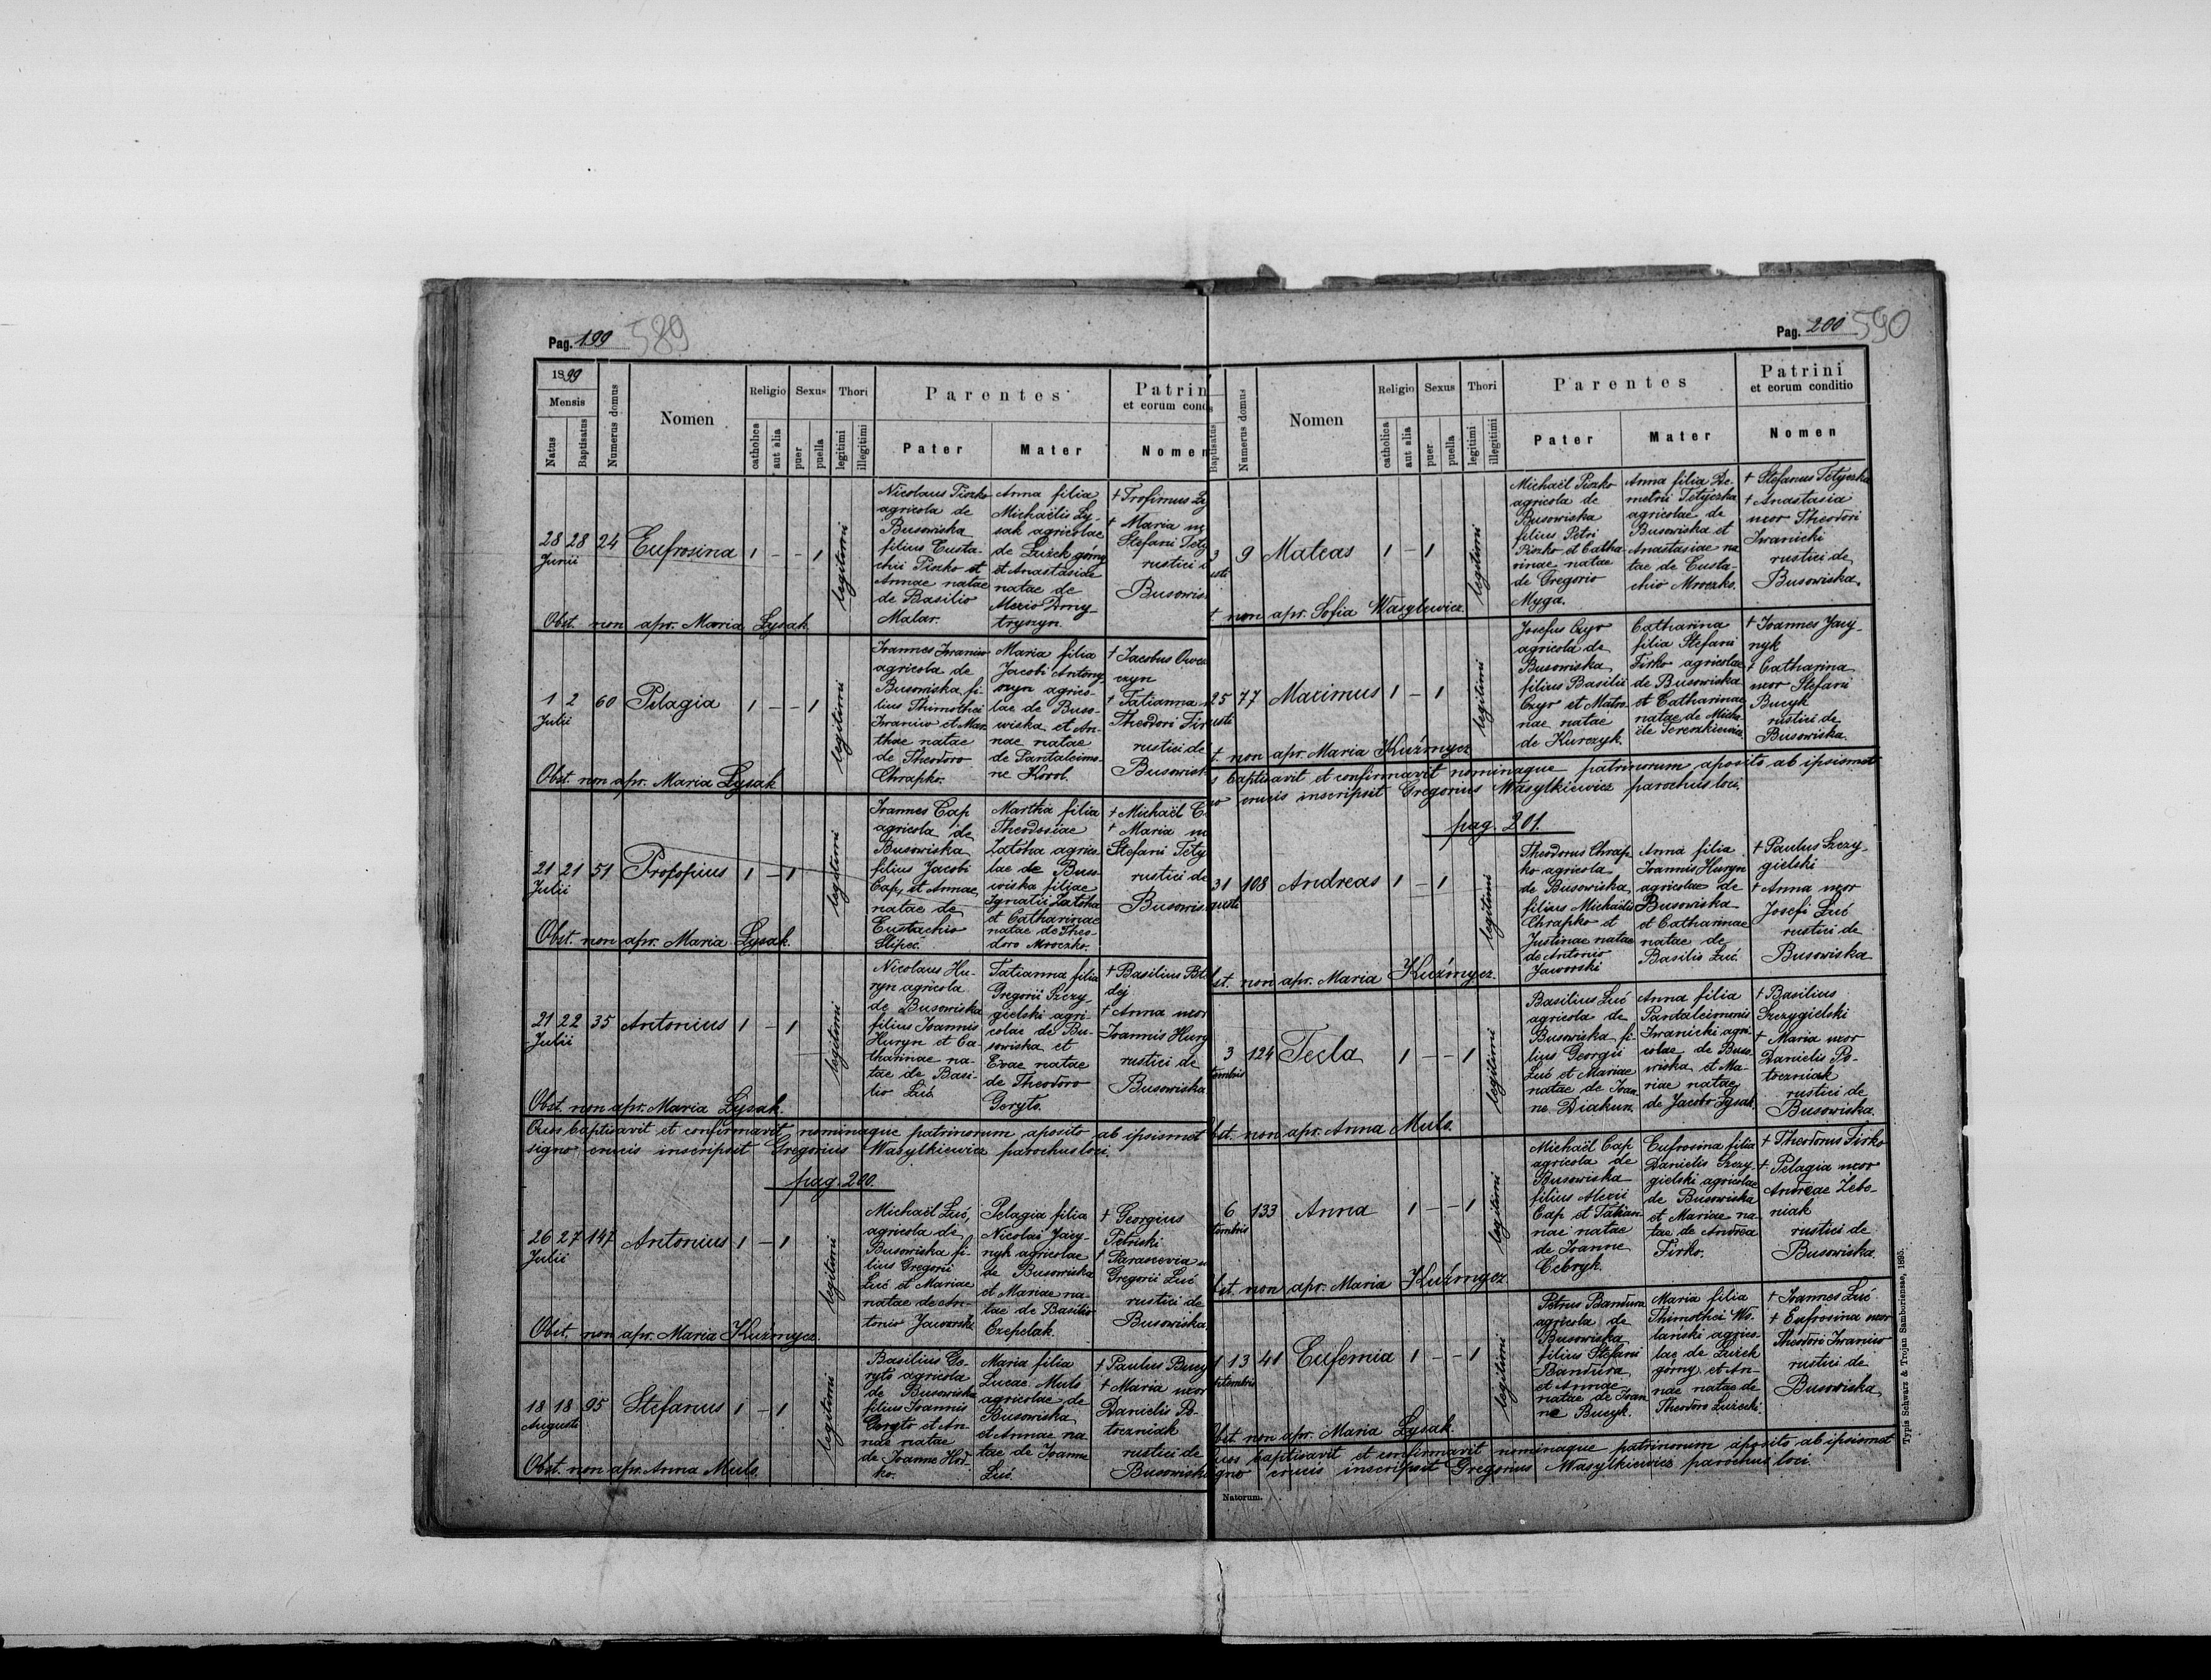 Pag. 199 589
1899
Mensis
Natus
Baptisatus
Numerus domus
Nomen
Religio
catholica
aut alia
Sexus
puer
puella
Thori
legitimi
illegitimi
Parentes
Pater
Mater
Patrin
et eorum cond
Nomen
28 28 24 Eufrosina 1 - - 1
Junii
legitimi
Nicolaus Piszko
agricola de
Busowiska
filius Eusta-
chii Piszko et
Annae natae
de Basilio
Malar.
Anna filia
Michaëlis Ły-
sak agricolae
de Łużek górny
et Anastasiae
natae de
Dmy-
tryszyn.
† Trofimus Ły
† Maria
Stefani Tety
rustici
Busowis
Obst. non apr. Maria Łysak.
1 2 60 Pelagia 1 - - 1
Julii
legitimi
Joannes Iwaniw
agricola de
Busowiska fi-
lius Thimothei
Iwaniw et Mar-
thae natae
de Theodoro
Chrapko.
Maria filia
Jacobi Antony-
szyn agrico-
lae de Buso-
wiska et An-
nae natae
de Pantaleimo-
ne Korol.
† Jacobus
czyn
† Tatianna
Theodori Fir
rustici de
Busowisk
Obst. non apr. Maria Łysak
21 21 51 Prokopius 1 - 1
Julii
legitimi
Joannes Cap
agricola de
Busowiska
filius Jacobi
Cap, et Annae
natae de
Eustachio
Slipeć.
Martha filia
Theodosiae
Zatoka agrico-
lae de Buso-
wiska filiae
Ignatii Zatoka
et Catharinae
natae de Theo-
doro Mroczko.
† Michaël C
† Maria
Stefani Tety
rustici de
Busowis
Obst. non apr. Maria Łysak.
21 22 35 Antonius 1 - 1
Julii
legitimi
Nicolaus Hu-
ryn agricola
de Busowiska
filius Joannis
Huryn et Ca-
tharinae na-
tae de Basi-
lio Łuć.
Tatianna filia
Gregorii Szczy-
gielski agri-
colae de Bu-
sowiska et
Evae natae
de Theodoro
Goryto.
† Basilius
dej
† Anna uxor
Joannis Hury
rustici de
Busowiska
Obst. non apr. Maria Łysak.
Quos baptisavit et confirmavit nominaque patrinorum aposito ab ipsismet
signo crucis inscripsit Gregorius Wasylkiewicz parochus loci.
pag. 200.
26 27 147 Antonius 1 - 1
Julii
legitimi
Michaël Łuć,
agricola de
Busowiska fi-
lius Gregorii
Łuć et Mariae
natae de An-
tonio Jaworski
Pelagia filia
Nicolai Jary-
nyk agricolae
de Busowiska
et Mariae na-
tae de Basilio
Czepelak.
† Georgius
Petriski
† Parascevia u
Gregorii Łuć
rustici de
Busowiska
Obst. non apr. Maria Kuźmycz.
18 18 95 Stefanus 1 - 1
Augusti
legitimi
Basilius Go-
ryto agricola
de Busowiska
filius Joannis
Goryto et An-
nae natae
de Joanne Hod-
ko.
Maria filia
Lucae Muls
agricolae de
Busowiska
et Annae na-
tae de Joanne
Łuć.
† Paulus Bucy
† Maria uxor
Danielis Po-
toczniak
rustici de
Busowiska
Obst. non apr. Anna Muls.
Pag. 200 590
Baptisatus
Numerus domus
Nomen
Religio
catholica
aut alia
Sexus
puer
puella
Thori
legitimi
illegitimi
Parentes
Pater
Mater
Patrini
et eorum conditio
Nomen
3 9 Mateas 1 - 1
usti
legitimi
Michaël Piszko
agricola de
Busowiska
filius Petri
Piszko et Catha-
rinae natae
de Gregorio
Myga.
Anna filia De-
metrii Tetyczka
agricolae de
Busowiska et
Anastasiae na-
tae de Eusta-
chio Mroczko.
† Stefanus Tetyczka
† Anastasia
uxor Theodori
Iwanicki
rustici de
Busowiska.
t. non apr. Sofia Wasylewicz.
25 77 Maximus 1 - 1
usti
legitimi
Josefus Czyr
agricola de
Busowiska
filius Basilii
Czyr et Matro-
nae natae
de Kurczyk.
Catharina
filia Stefani
Firko agricolae
de Busowiska
et Catharinae
natae de Micha-
ële Tereszkiewicz.
† Joannes Jary-
nyk
† Catharina
uxor Stefani
Bucyk
rustici de
Busowiska.
t. non apr. Maria Kuźmycz
s baptisavit et confirmavit nominaque patrinorum aposito ab ipsismet
no crucis inscripsit Gregorius Wasylkiewicz parochus loci.
pag. 201.
31 108 Andreas 1 - 1
gusti
legitimi
Theodorus Chrap-
ko agricola
de Busowiska
filius Michaëlis
Chrapko et
Justinae natae
de Antonio
Jaworski
Anna filia
Joannis Huryn
agricolae de
Busowiska
et Catharinae
natae de
Basilio Łuć.
† Paulus Szczy-
gielski
† Anna uxor
Josefi Łuć
rustici de
Busowiska
st. non apr. Maria Kuźmycz.
3 124 Tecla 1 - - 1
tembris
legitimi
Basilius Łuć
agricola de
Busowiska fi-
lius Georgii
Łuć et Mariae
natae de Joan-
ne Diakun.
Anna filia
Pantaleimonis
Iwanicki agri-
colae de Buso-
wiska et Ma-
riae natae
de Jacobo Łysak.
† Basilius
Szczygielski
† Maria uxor
Danielis Po-
toczniak
rustici de
Busowiska.
bst. non apr. Anna Muls.
6 133 Anna 1 - - 1
tembris
legitimi
Michaël Cap
agricola de
Busowiska
filius Alexii
Cap et Tatian-
nae natae
de Joanne
Cebryk.
Eufrosina filia
Danielis Szczy-
gielski agricolae
de Busowiska
et Mariae na-
tae de Andrea
Firko.
† Theodorus Firko
† Pelagia uxor
Andreae Żebo-
niak
rustici de
Busowiska.
bst. non apr. Maria Kuźmycz
1 13 41 Eufemia 1 - - 1
ptembris
legitimi
Petrus Bandura
agricola de
Busowiska
filius Stefani
Bandura
et Annae
natae de Joan-
ne Bucyk.
Maria filia
Thimothei Wo-
lański agrico-
lae de Łużek
górny et An-
nae natae de
Theodoro Łużecki.
† Joannes Łuć
† Eufrosina uxor
Theodori Iwaniw
rustici de
Busowiska
Obst. non apr. Maria Łysak.
Quos baptisavit et confirmavit nominaque patrinorum aposito ab ipsismet
igno crucis inscripsit Gregorius Wasylkiewicz parochus loci.
Natorum.
Typis Schwarz & Trojan Samboriense, 1895.